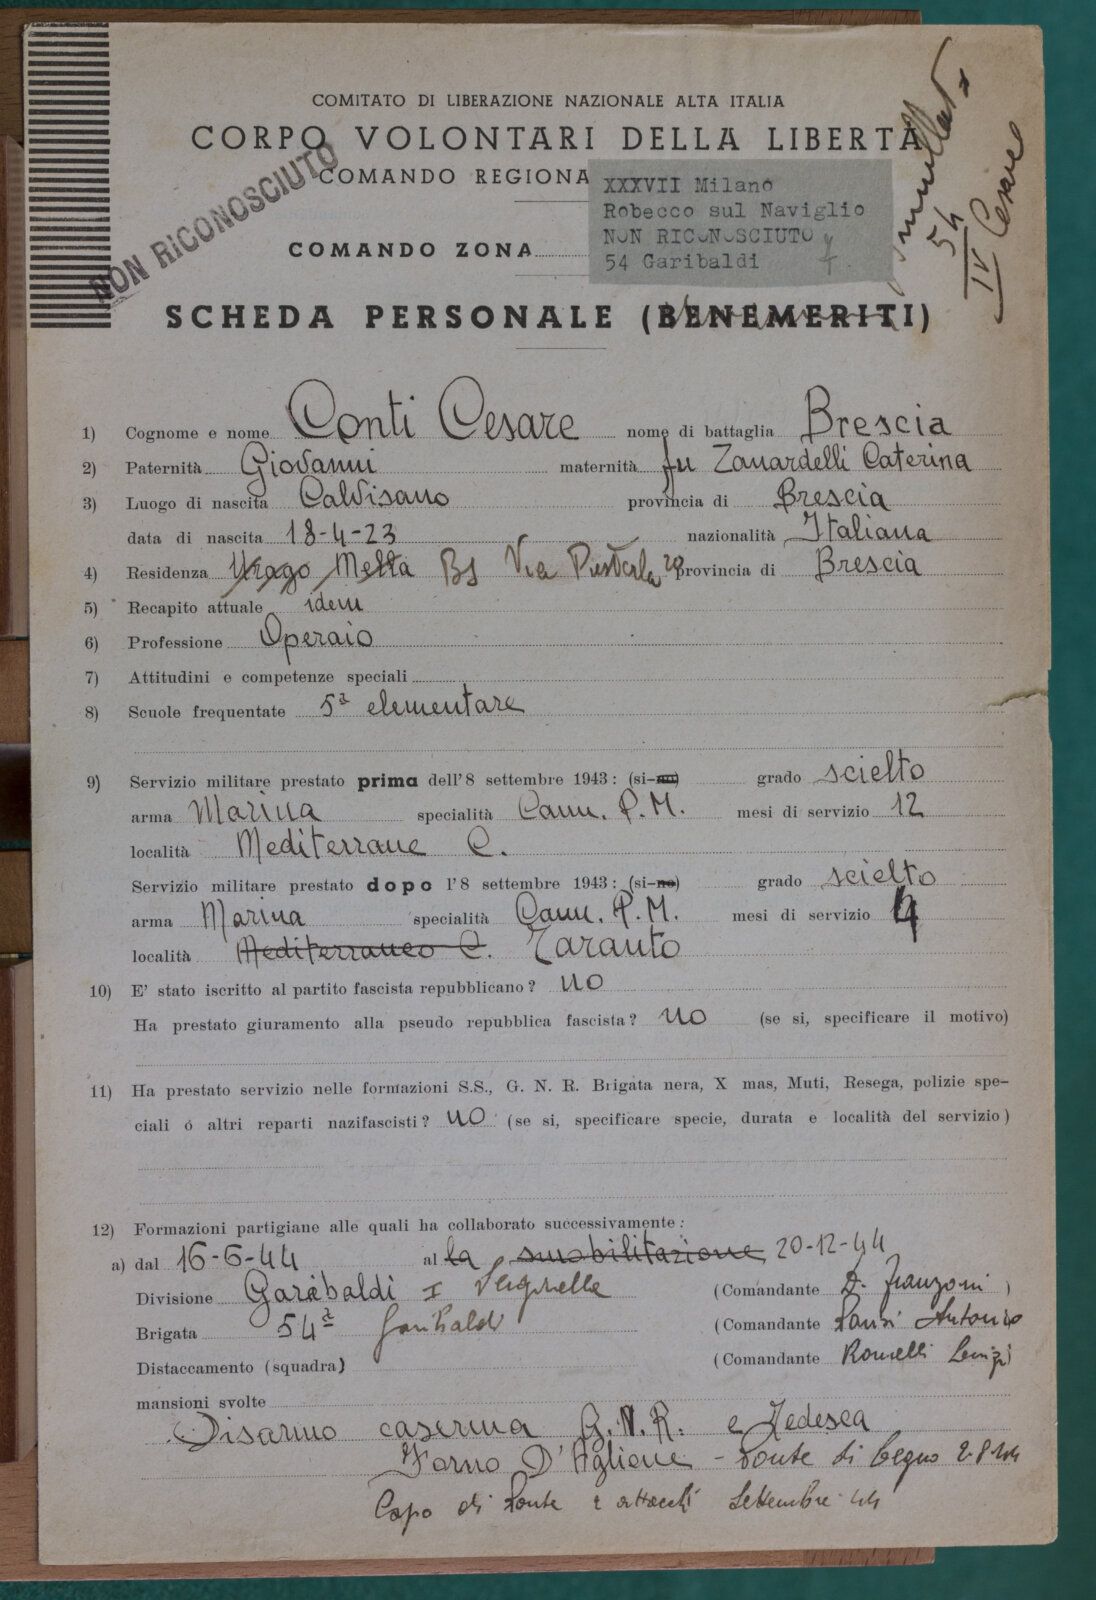 COMITATO DI LIBERAZIONE NAZIONALE ALTA ITALIA
CORPO VOLONTARI DELLA LIBERTÀ
COMANDO REGIONA
NON RICONOSCIUTO
XXXVII Milano
Robecco sul Naviglio
NON RICONOSCIUTO
54 Garibaldi
54
IV Cesare
COMANDO ZONA
SCHEDA PERSONALE (BENEMERITI)
1) Cognome e nome Conti Cesare nome di battaglia Brescia
2) Paternità Giovanni maternità fu Zanardelli Caterina
3) Luogo di nascita Calvisano provincia di Brescia
data di nascita 18-4-23 nazionalità Italiana
4) Residenza Urago Mella Bs Via 20 provincia di Brescia
5) Recapito attuale idem
6) Professione Operaio
7) Attitudini e competenze speciali
8) Scuole frequentate 5ª elementare
9) Servizio militare prestato prima dell'8 settembre 1943: (si-no) grado scielto
arma Marina specialità Cann. P.M. mesi di servizio 12
località Mediterrane C.
Servizio militare prestato dopo l'8 settembre 1943: (si-no) grado scielto
arma Marina specialità Cann. P.M. mesi di servizio 4
località Mediterraneo C. Taranto
10) E' stato iscritto al partito fascista repubblicano? no
Ha prestato giuramento alla pseudo repubblica fascista? no (se si, specificare il motivo)
11) Ha prestato servizio nelle formazioni S.S., G. N. R. Brigata nera, X mas, Muti, Resega, polizie spe-
ciali ó altri reparti nazifascisti? no (se si, specificare specie, durata e località del servizio)
12) Formazioni partigiane alle quali ha collaborato successivamente:
a) dal 16-6-44 al la smobilitazione 20-12-44
Divisione Garibaldi I (Comandante D. Franzoni)
Brigata 54ª Garibaldi (Comandante Antonio
Distaccamento (squadra) (Comandante Romelli Luigi
mansioni svolte
Disarmo caserma G.N.R. e Tedesca
Forno D'Aglione - Ponte di Legno 2-8-44
Capo di Ponte e attacchi Settembre 44